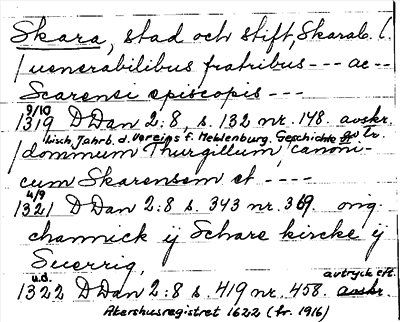 Skara, stad och stift, Skarab. l.
/ uenerabilibus fratribus --- ac --
Scarensi episcopis ---
9/10
1319 DDan 2:8, s. 132 nr. 148. avskr.
Lisch, Jahrb. d. Vereins f. Meklenburg. Geschichte
/ dominum Thurgillum, canoni-
cum Skarensem et ----
4/9
1321 DDan 2:8 s. 343 nr. 369. orig.
channick ij Schare kircke ij
Suerrig,
u.d. avtryck eft.
1322 DDan 2:8 s. 419 nr. 458. avskr.
Akershusregistret 1622 (tr. 1916)